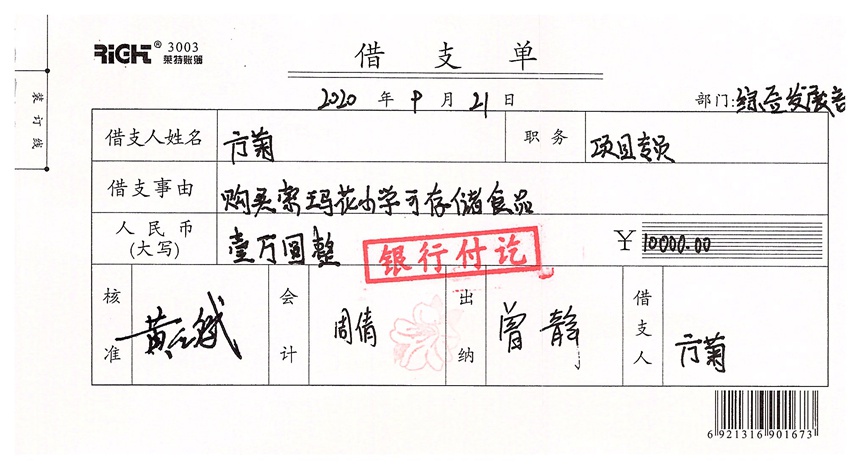 RiGHT® 3003
莱特账簿
借支单
2020 年 9 月 21 日
部门:综合发展部
装订线
借支人姓名 方菊 职务 项目专员
借支事由 购买索玛花小学可存储食品
人民币(大写) 壹万圆整 ¥ 10000.00
银行付讫
核准 会计 周倩 出纳 曾静 借支人 方菊
6 921316 901673